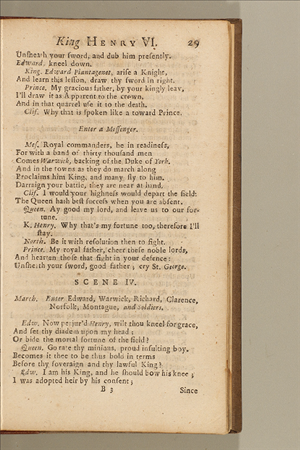 King HENRY VI. 29
Unsheath your sword, and dub him presently.
Edward, kneel down.
King. Edward Plantagenet, arise a Knight,
And learn this lesson, draw thy sword in right.
Prince. My gracious father, by your kingly leave,
I'll draw it as Apparent to the crown,
And in that quarrel use it to the death.
Clif. Why that is spoken like a toward Prince.
Enter a Messenger.
Mes. Royal commanders, be in readiness,
For with a band of thirty thousand men
Comes Warwick, backing of the Duke of York.
And in the towns as they do march along
Proclaims him King, and many fly to him.
Darraign your battle, they are near at hand.
Clif. I would your highness would depart the field:
The Queen hath best success when you are absent.
Queen. Ay good my lord, and leave us to our for-
tune.
K. Henry. Why that's my fortune too, therefore I'll
stay.
North. Be it with resolution then to fight.
Prince. My royal father, cheer these noble lords,
And hearten those that fight in your defence:
Unsheath your sword, good father; cry St. George.
SCENE IV.
March. Enter Edward, Warwick, Richard, Clarence,
Norfolk, Montague, and soldiers.
Edw. Now perjur'd Henry, wilt thou kneel for grace,
And set thy diadem upon my head;
Or bide the mortal fortune of the field?
Queen. Go rate thy minions, proud insulting boy,
Becomes it thee to be thus bold in terms
Before thy soveraign and thy lawful King?
Edw. I am his King, and he should bow his knee;
I was adopted heir by his consent;
B 3 Since